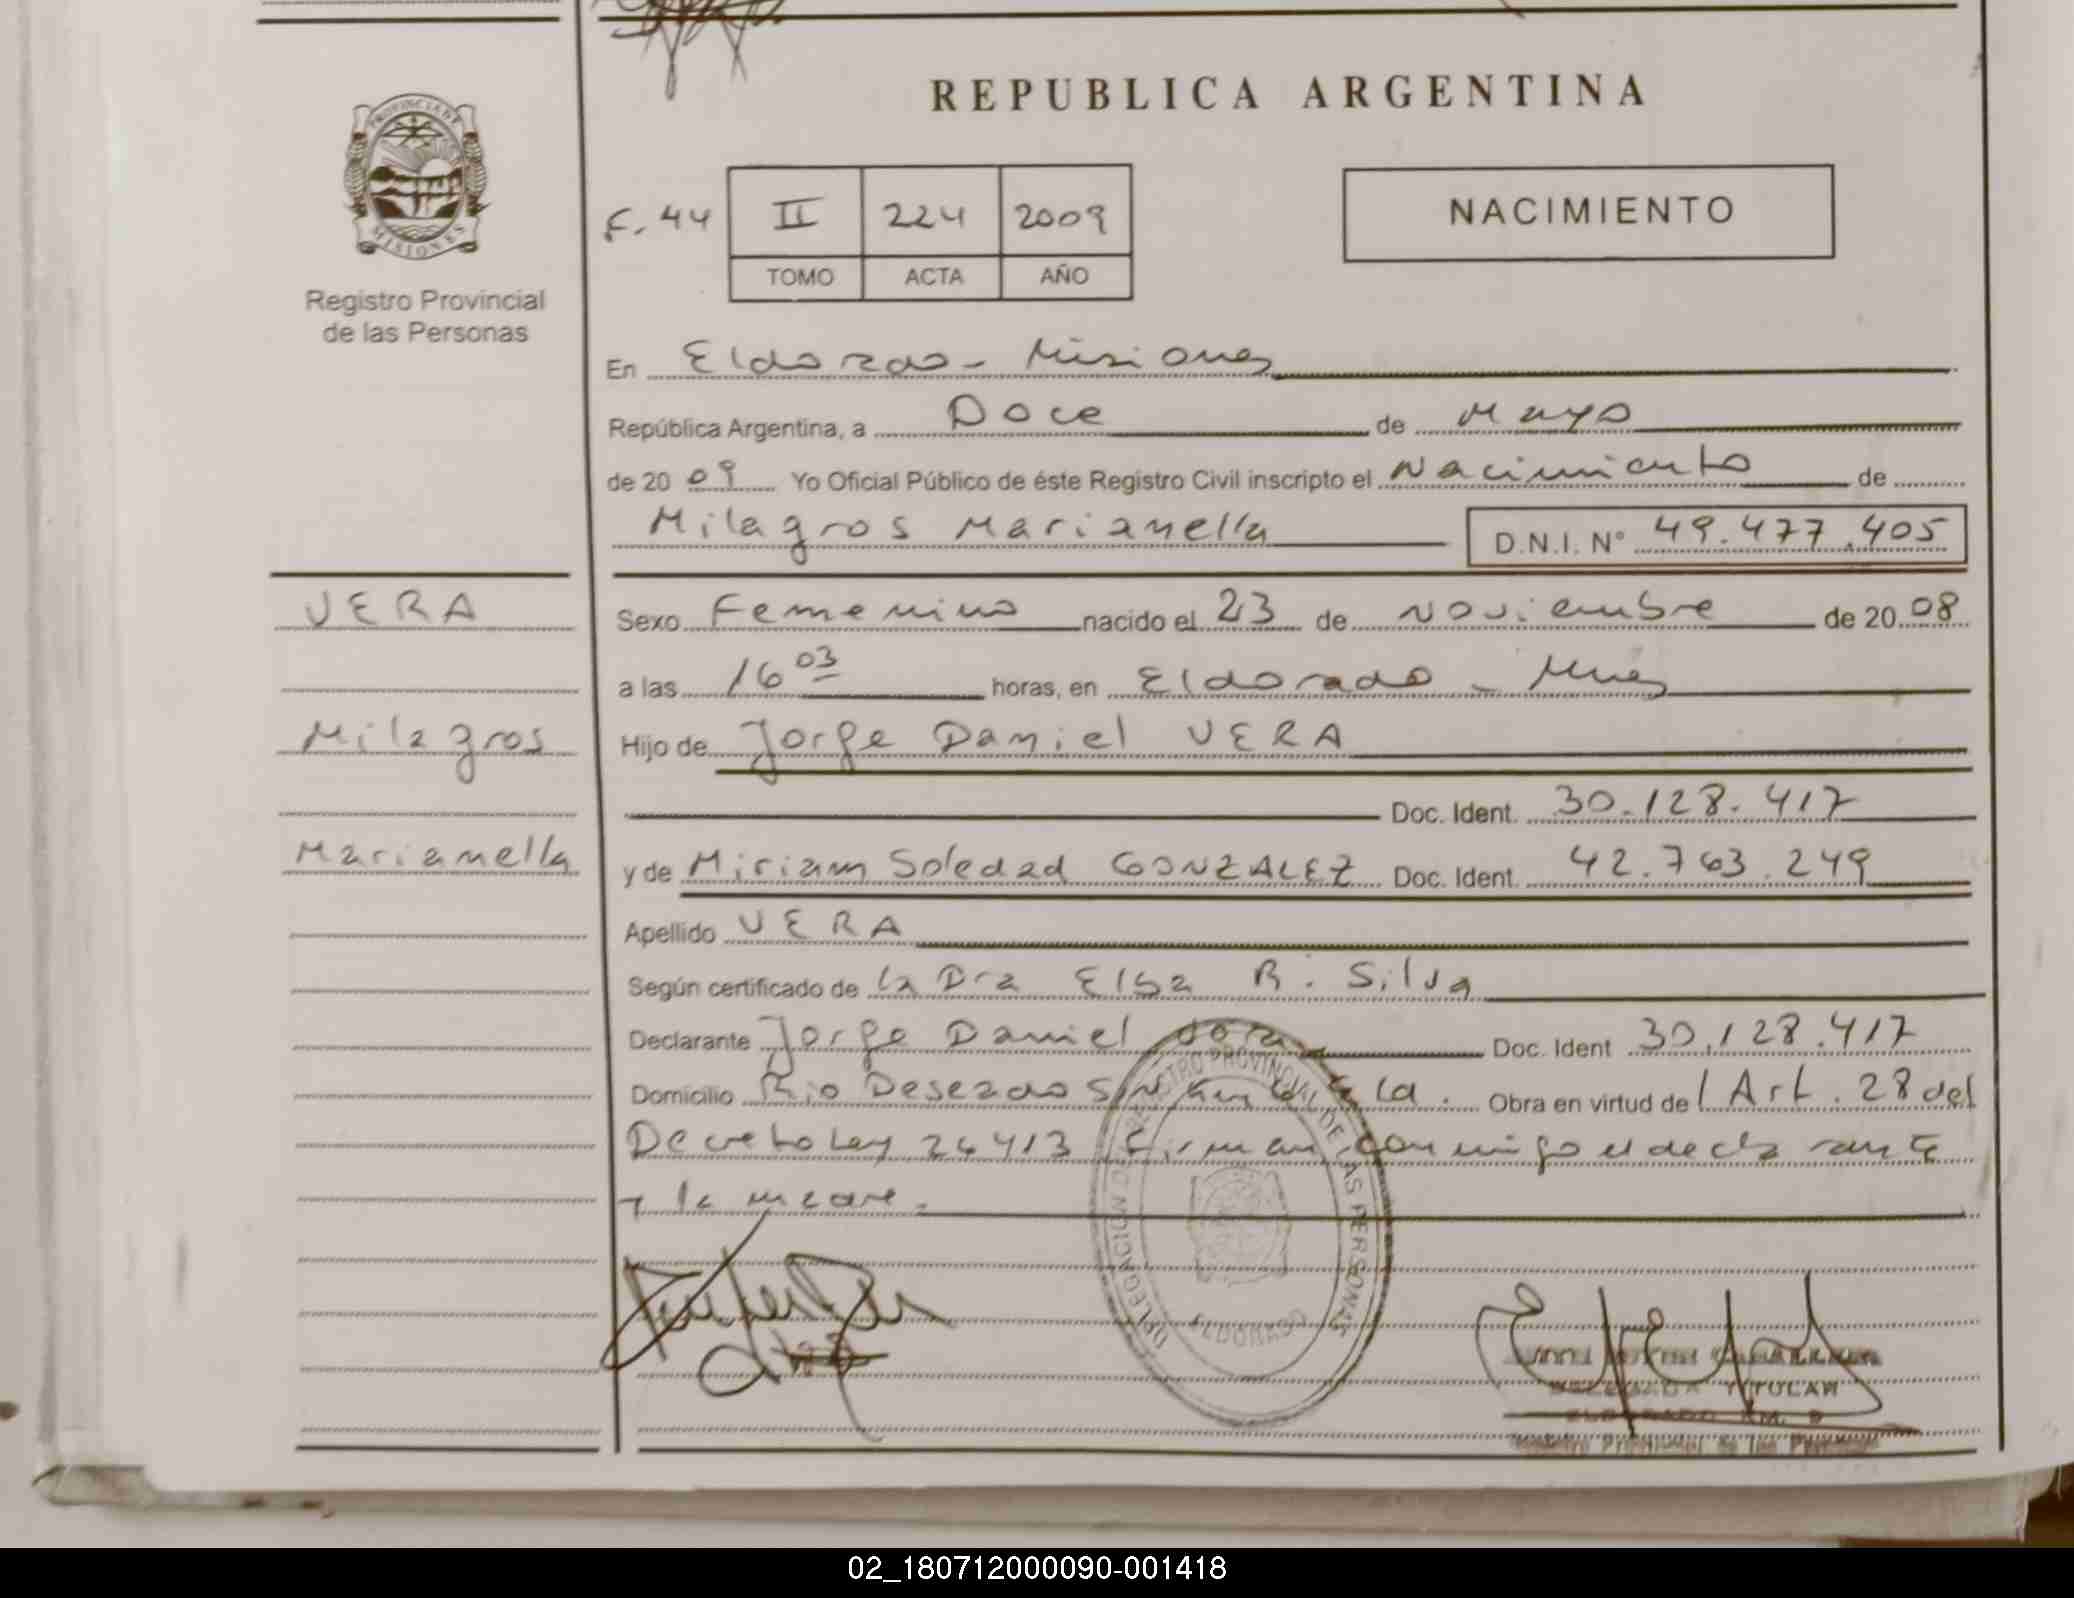 REPUBLICA ARGENTINA
PROVINCIA DE
MISIONES
Registro Provincial
de las Personas
F. 44 II 224 2009
TOMO ACTA AÑO
NACIMIENTO
En Eldorado - Misiones
República Argentina, a Doce de Mayo
de 2009 Yo Oficial Público de éste Registro Civil inscripto el Nacimiento de
Milagros Marianella D.N.I. N° 49.477.405
VERA
Milagros
Marianella
Sexo Femenino nacido el 23 de Noviembre de 2008
a las 16 03 horas, en Eldorado - Mnes
Hijo de Jorge Daniel VERA
Doc. Ident. 30.128.417
y de Miriam Soledad GONZALEZ Doc. Ident. 42.763.249
Apellido VERA
Según certificado de la Dra Elba R. Silva
Declarante Jorge Daniel Vera Doc. Ident 30.128.417
Domicilio Rio Deseado S/N Obra en virtud del Art. 28 del
Decreto Ley 26413 Firman conmigo el declarante
y la madre.
DELEGACION DEL REGISTRO PROVINCIAL DE LAS PERSONAS
ELDORADO
DELEGADA TITULAR
Registro Provincial de las Personas
02_180712000090-001418